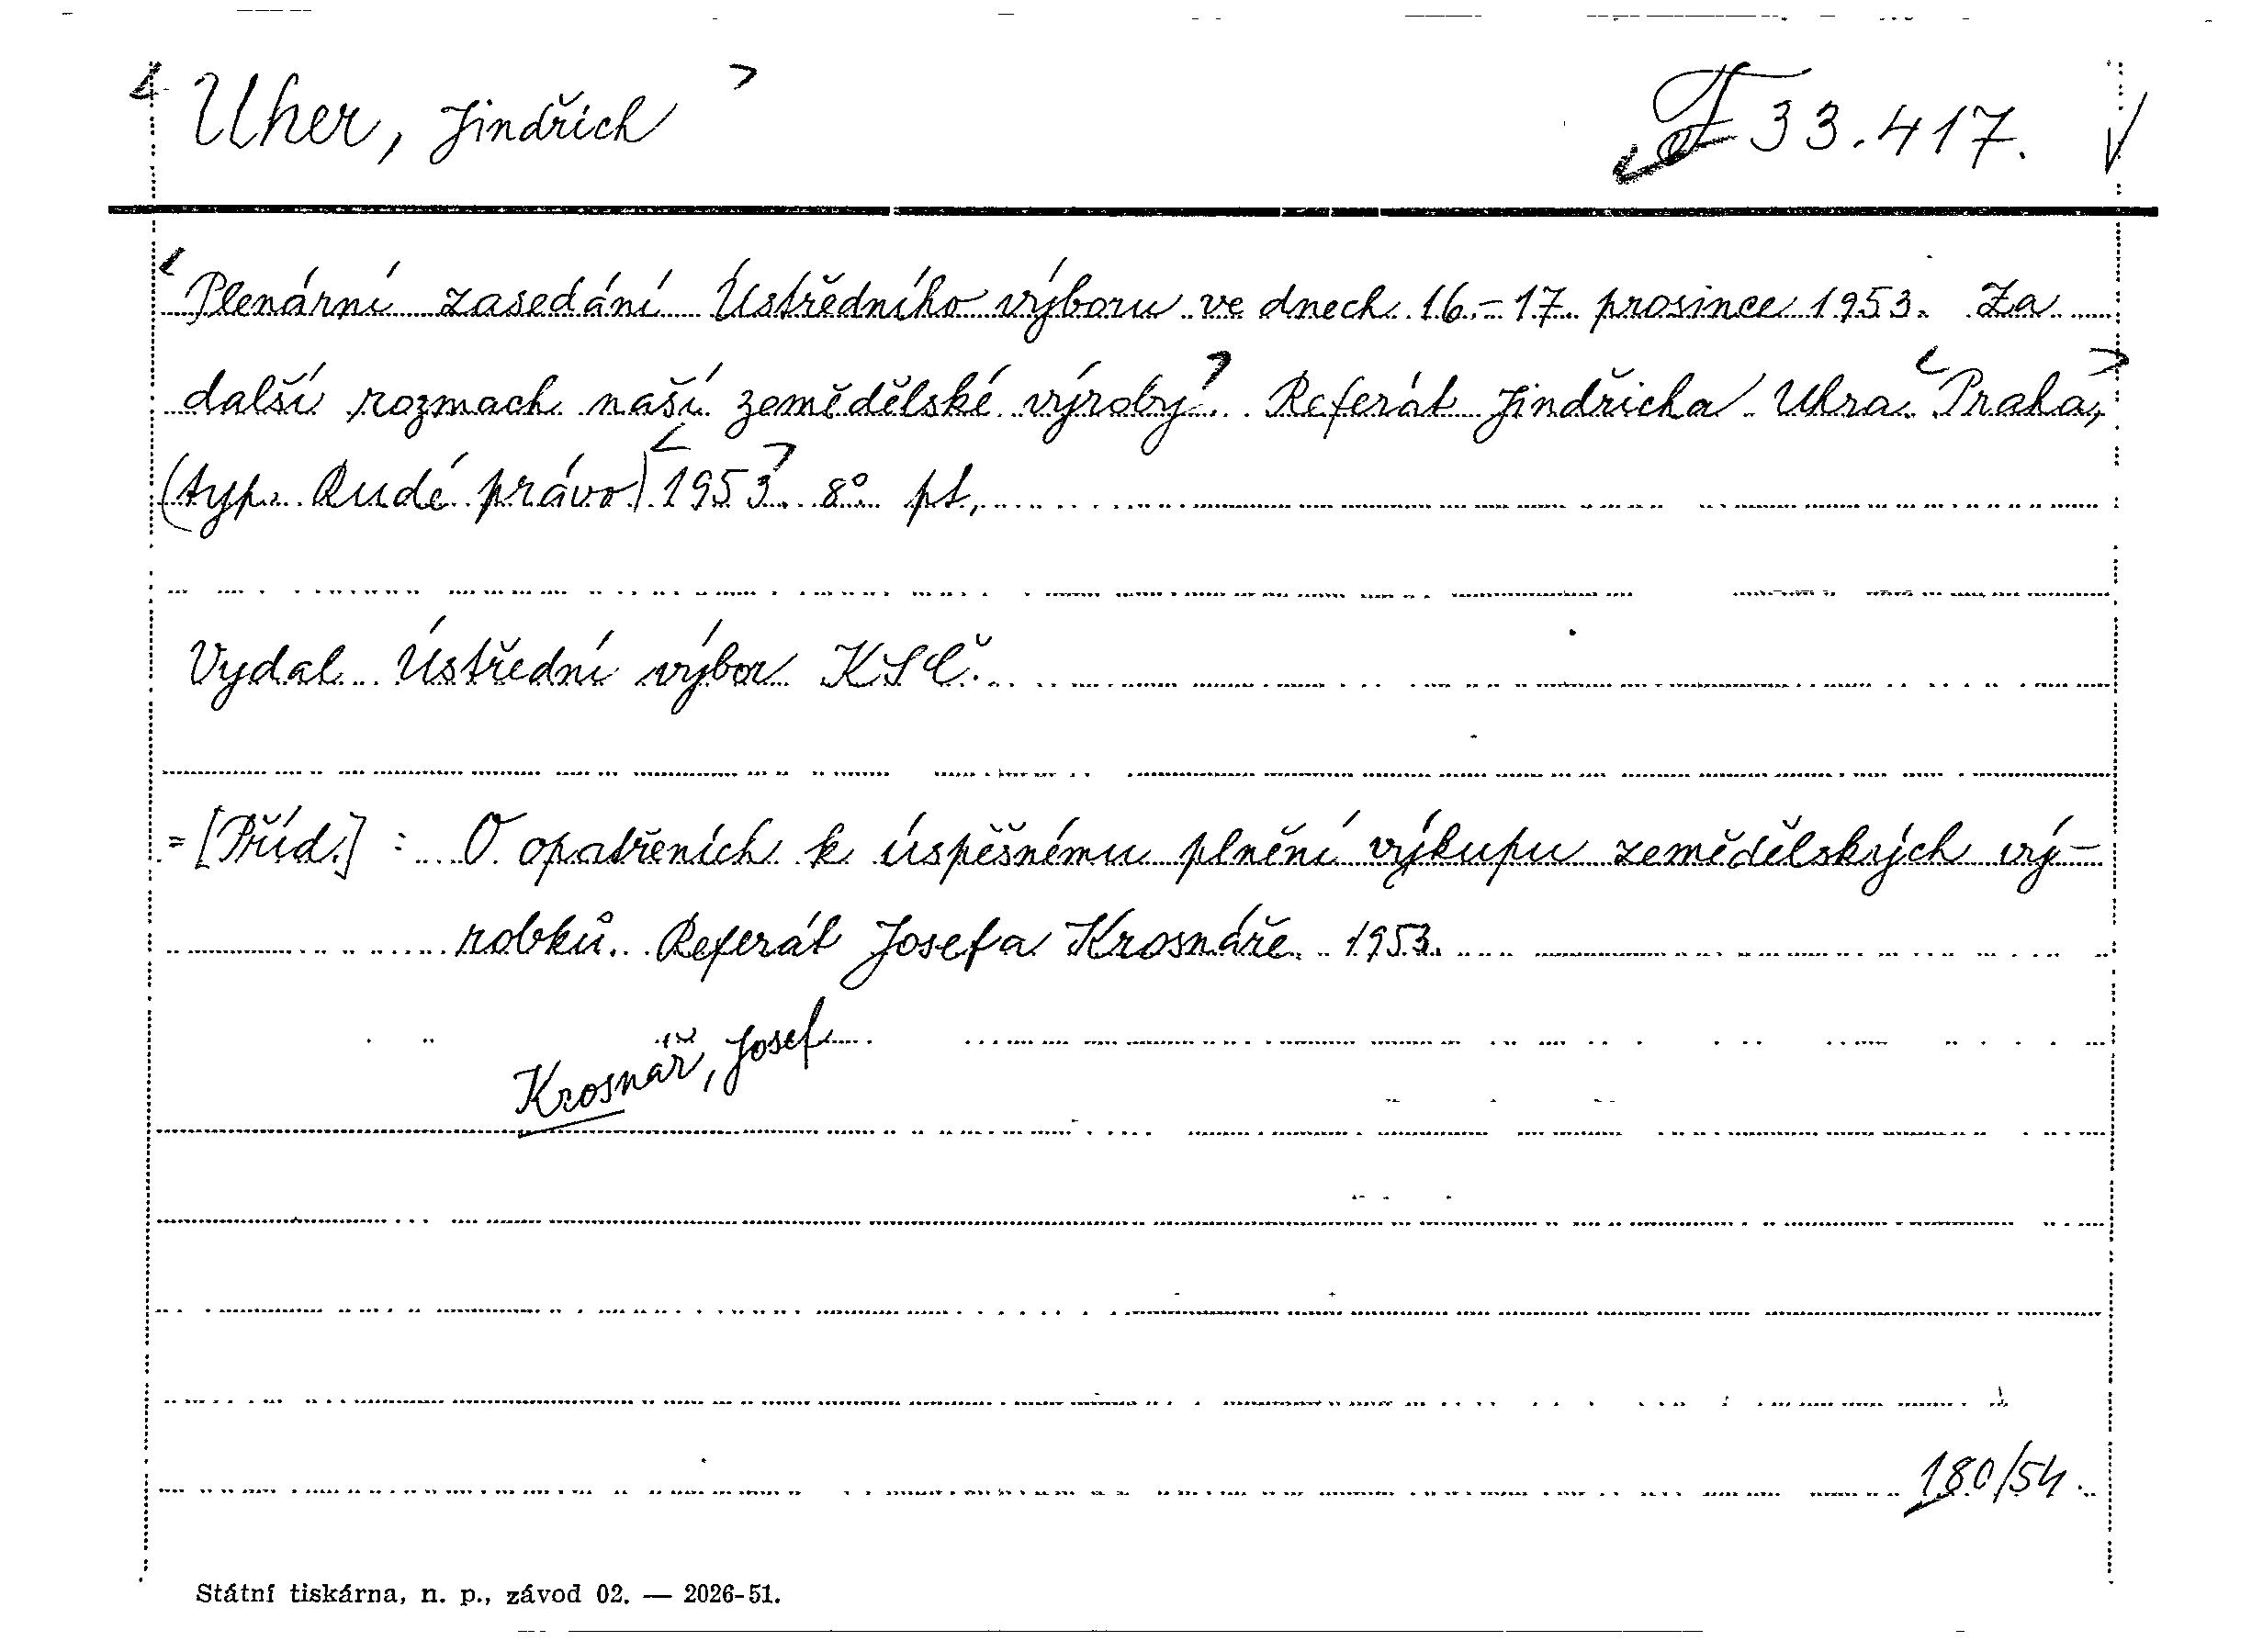 Uher, Jindřich F 33.417.
Plenární zasedání Ústředního výboru ve dnech 16.-17. prosince 1953. Za
další rozmach naší zemědělské výroby. Referát Jindřicha Uhra. Praha,
(typ. Rudé právo) 1953. 8° pt.,
Vydal Ústřední výbor KSČ.
= [Příd.] : O opatřeních k úspěšnému plnění výkupu zemědělských vý-
robků. Referát Josefa Krosnáře. 1953.
Krosnář, Josef
180/54.
Státní tiskárna, n. p., závod 02. — 2026-51.